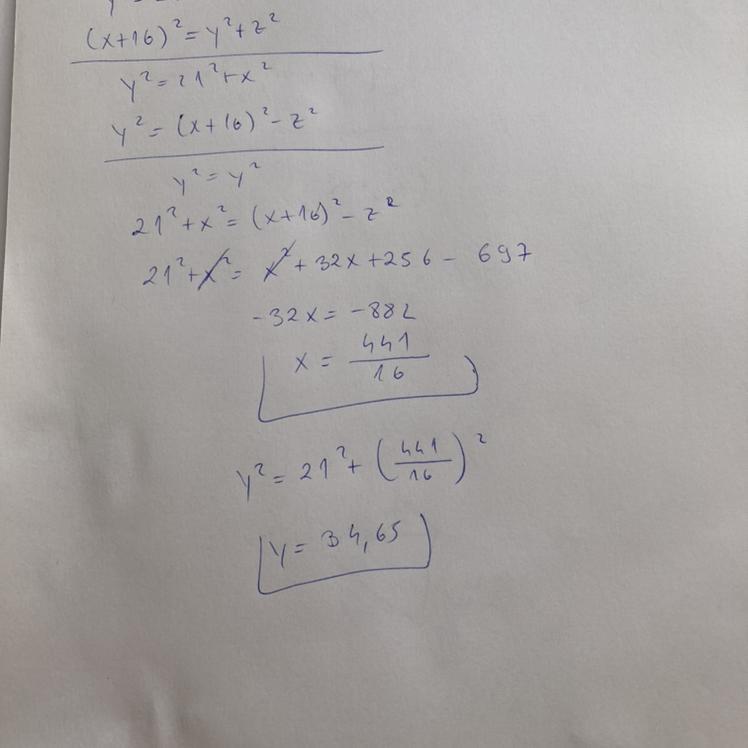 (x+16)² = y² + z²
y² = 21² + x²
y² = (x+16)² - z²
y² = y²
21² + x² = (x+16)² - z²
21² + x² = x² + 32x + 256 - 697
-32x = -882
x = 441/16
y² = 21² + (441/16)²
y = 34,65